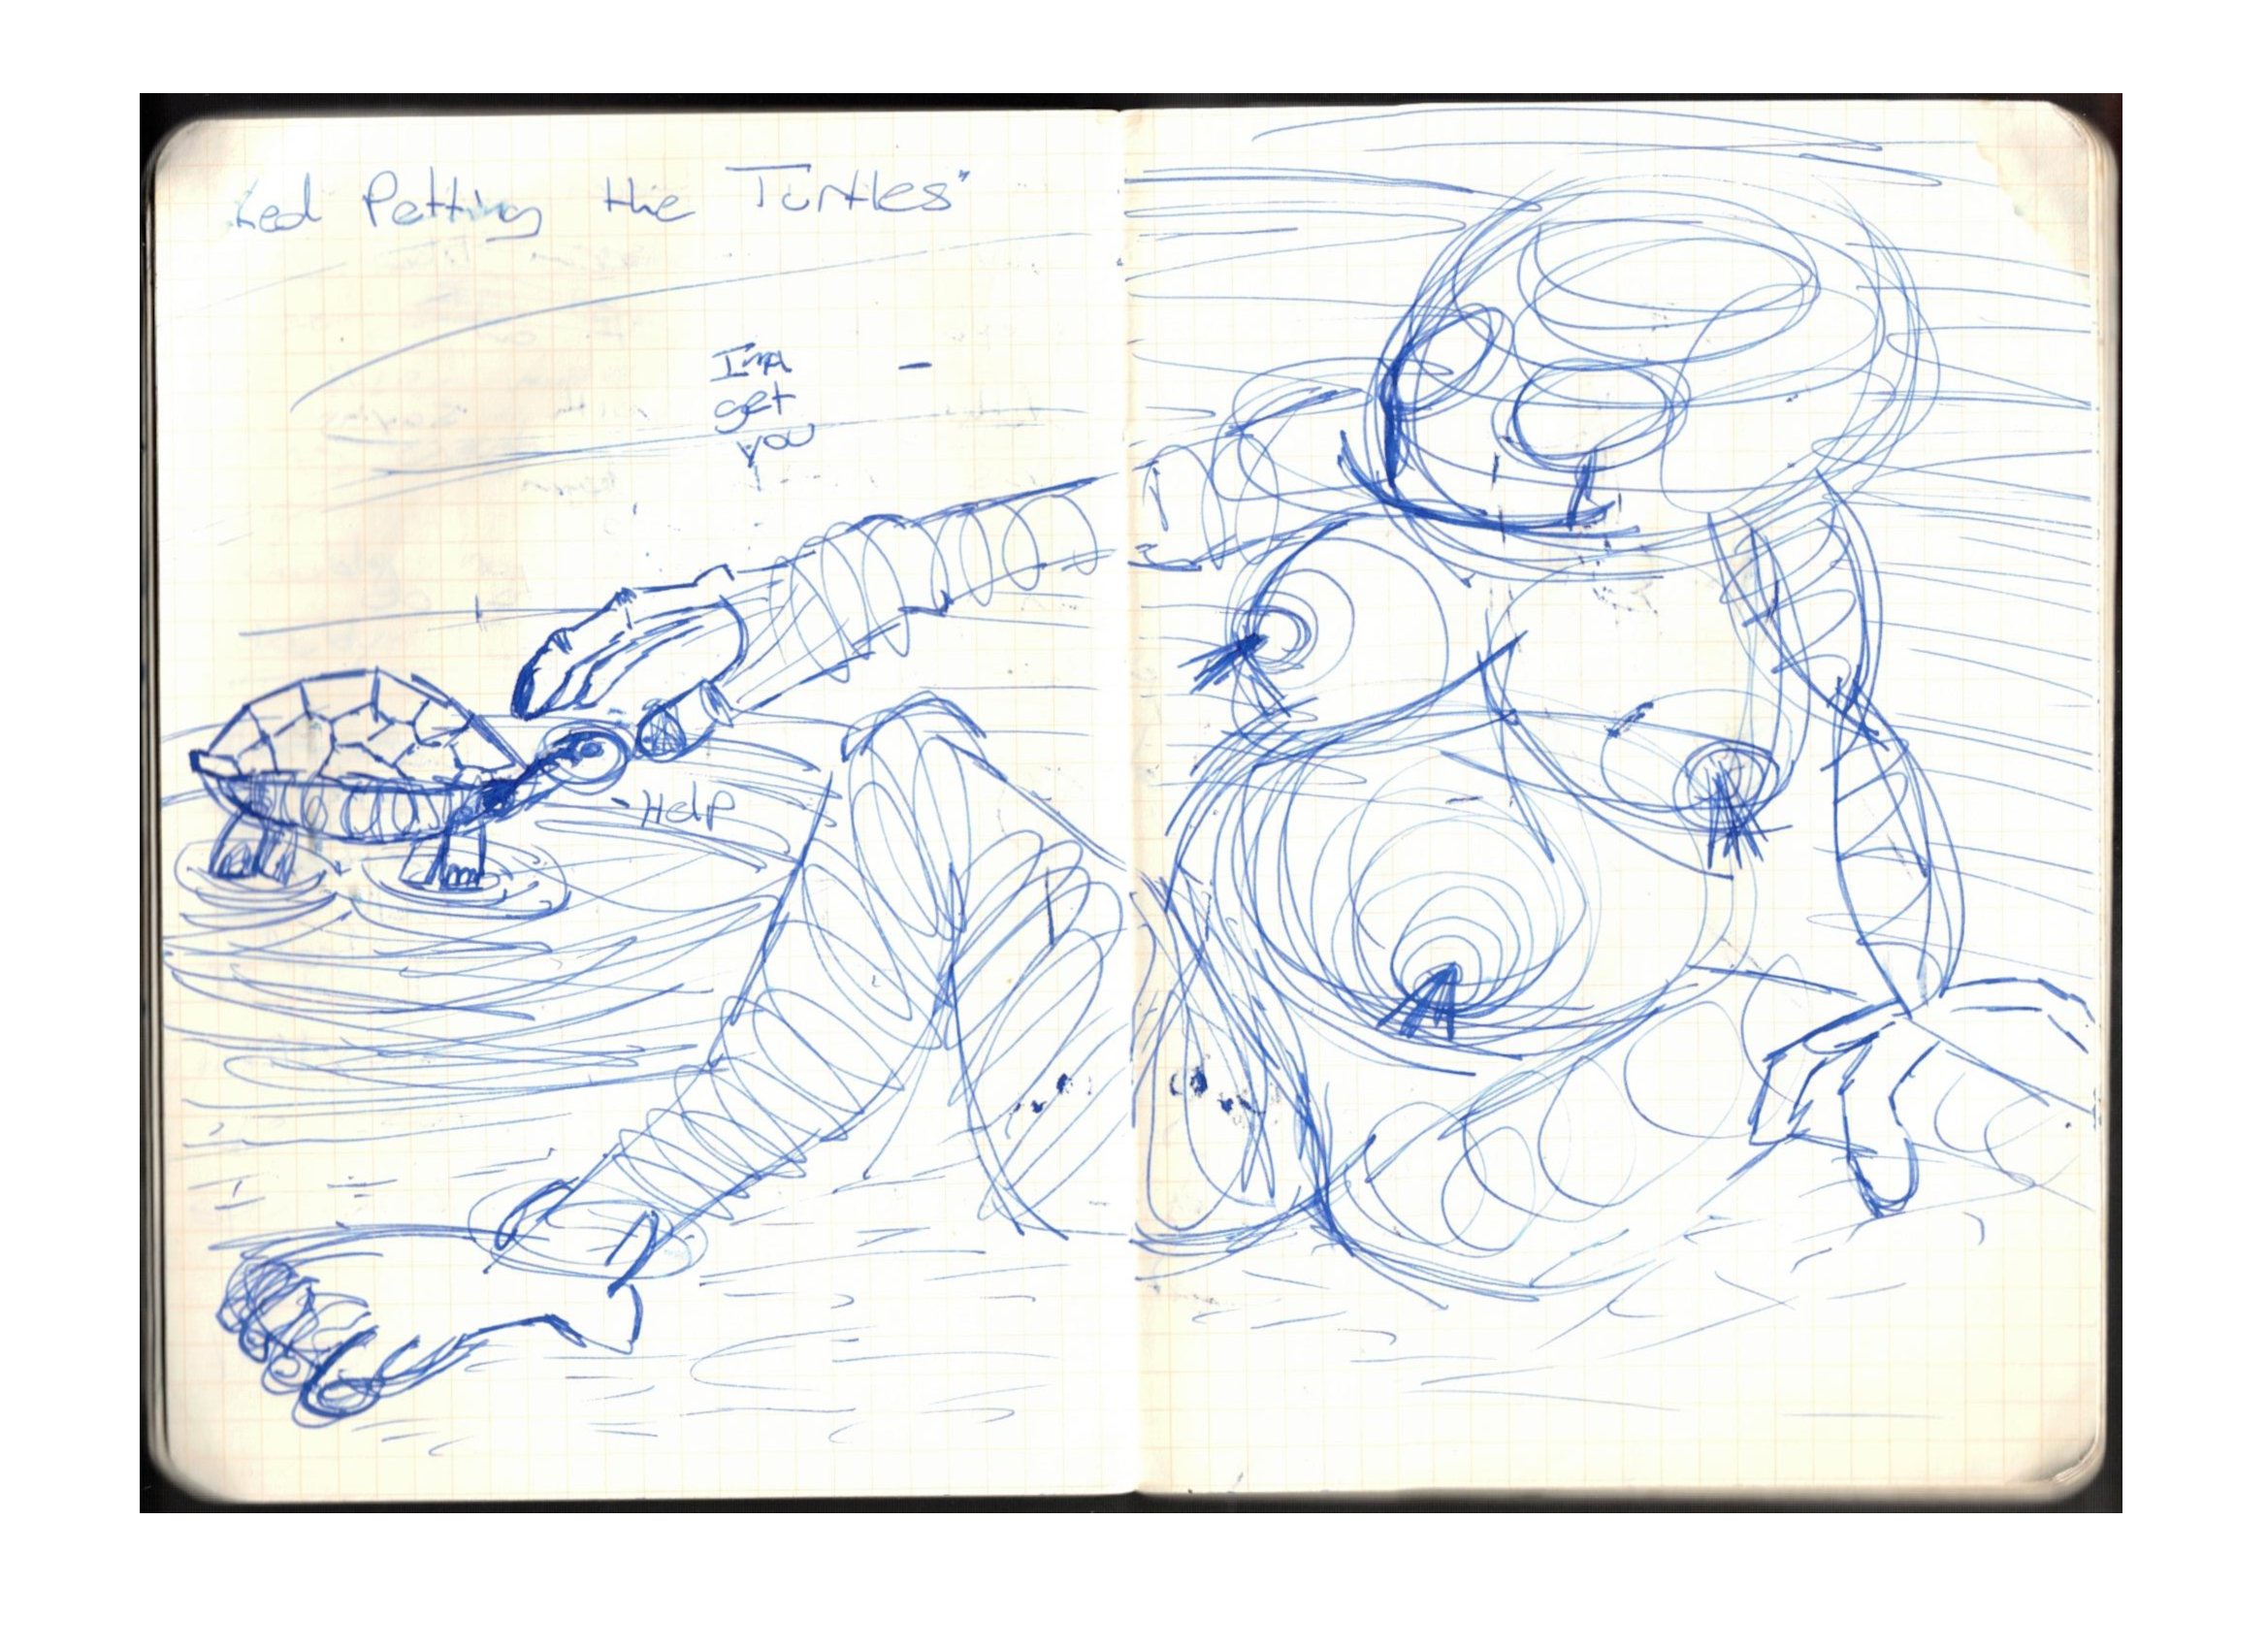 Petting the Turtles"
Ima
get
you
-Help